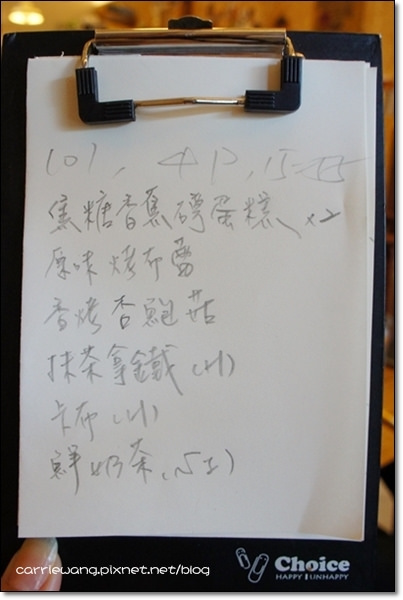 101, 4P, 15:55
焦糖香蕉磚蛋糕 x2
原味烤布蕾
香烤杏鮑菇
抹茶拿鐵 (H)
卡布 (H)
鮮奶茶
Choice
HAPPY UNHAPPY
carriewang.pixnet.net/blog